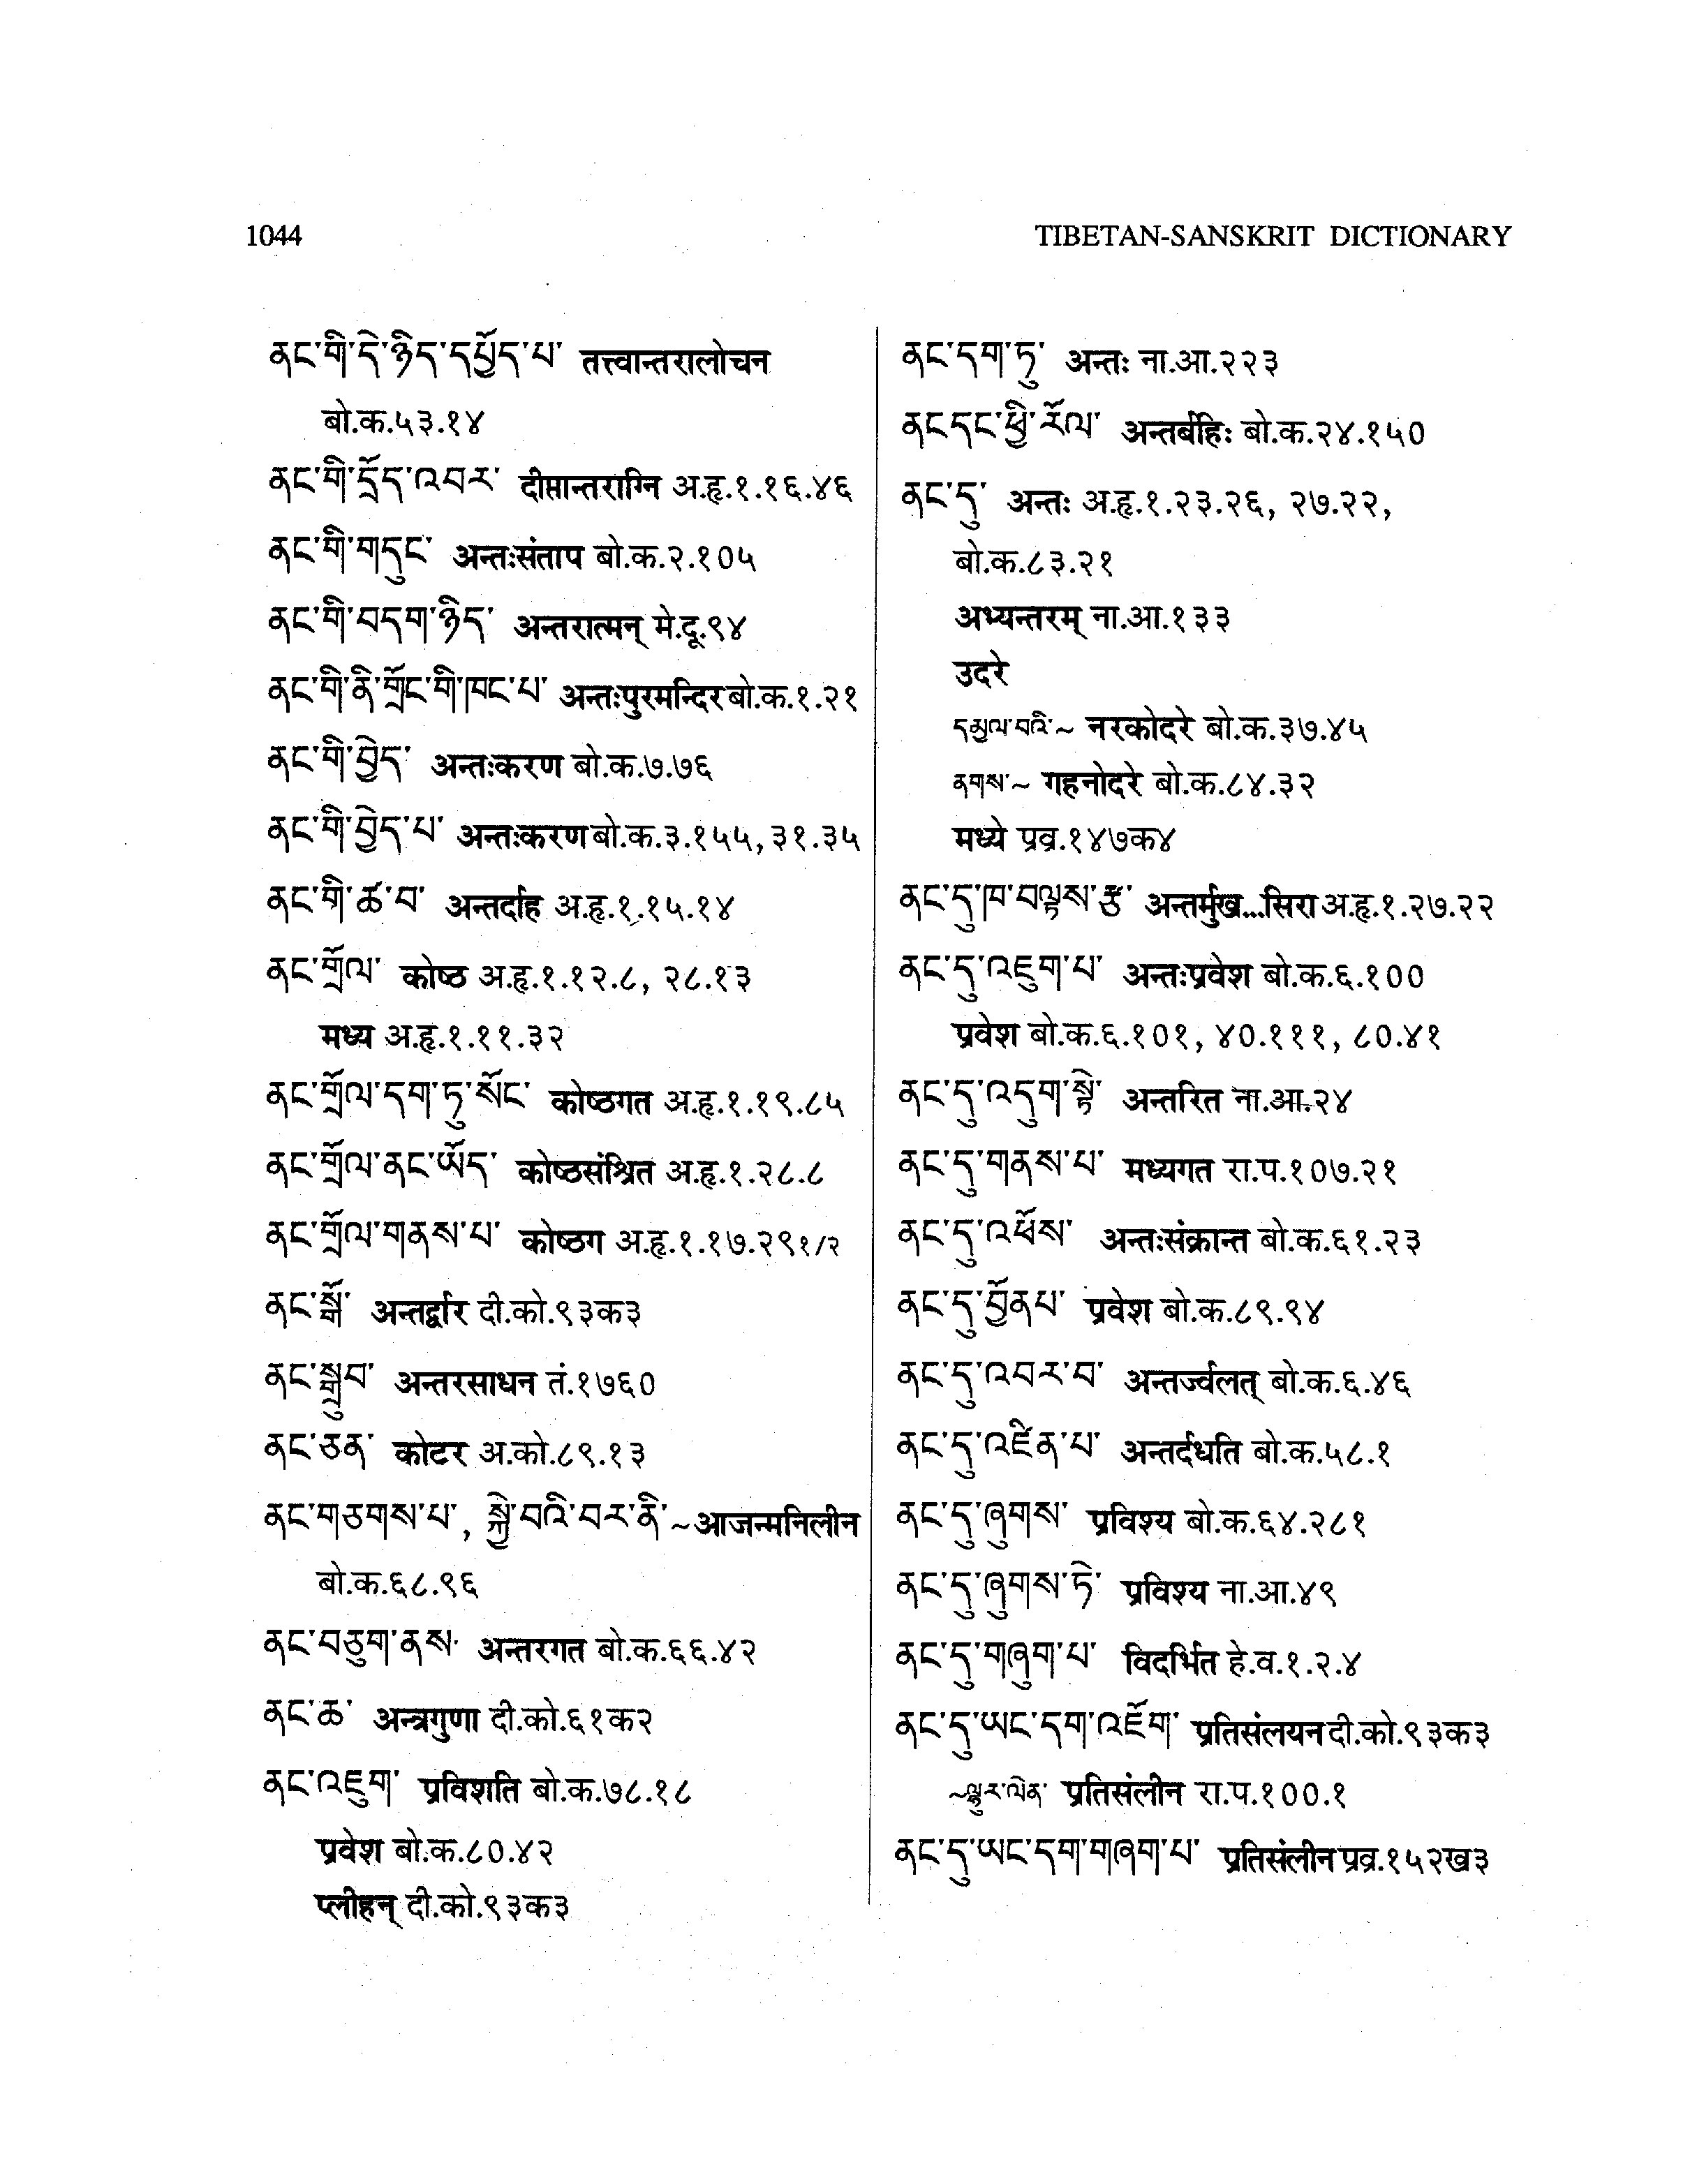 1044
TIBETAN-SANSKRIT DICTIONARY
ནང་གི་དེ་ཉིད་དཔྱོད་པ་ तत्त्वान्तरालोचन
बो.क.५३.१४
ནང་གི་དྲོད་འབར་ दीप्तान्तराग्नि अ.हृ.१.१६.४६
ནང་གི་གདུང་ अन्तःसंताप बो.क.२.१०५
ནང་གི་བདག་ཉིད་ अन्तरात्मन् मे.दू.९४
ནང་གི་ནི་གྲོང་གི་ཁང་པ་ अन्तःपुरमन्दिर बो.क.१.२१
ནང་གི་བྱེད་ अन्तःकरण बो.क.७.७६
ནང་གི་བྱེད་པ་ अन्तःकरण बो.क.३.१५५, ३१.३५
ནང་གི་ཚ་བ་ अन्तर्दाह अ.हृ.१.१५.१४
ནང་གྲོལ་ कोष्ठ अ.हृ.१.१२.८, २८.१३
मध्य अ.हृ.१.११.३२
ནང་གྲོལ་དག་ཏུ་སོང་ कोष्ठगत अ.हृ.१.१९.८५
ནང་གྲོལ་ནང་ཡོད་ कोष्ठसंश्रित अ.हृ.१.२८.८
ནང་གྲོལ་གནས་པ་ कोष्ठग अ.हृ.१.१७.२९१/२
ནང་སྒོ་ अन्तर्द्वार दी.को.९३क३
ནང་སྒྲུབ་ अन्तरसाधन तं.१७६०
ནང་ཅན་ कोटर अ.को.८९.१३
ནང་གཅགས་པ་, སྐྱེ་བའི་བར་ནི་~आजन्मनिलीन
बो.क.६८.९६
ནང་བཅུག་ནས་ अन्तरगत बो.क.६६.४२
ནང་ཆ་ अन्त्रगुणा दी.को.६१क२
ནང་འཇུག་ प्रविशति बो.क.७८.१८
प्रवेश बो.क.८०.४२
प्लीहन् दी.को.९३क३
ནང་དག་ཏུ་ अन्तः ना.आ.२२३
ནང་དང་ཕྱི་རོལ་ अन्तर्बहिः बो.क.२४.१५०
ནང་དུ་ अन्तः अ.हृ.१.२३.२६, २७.२२,
बो.क.८३.२१
अभ्यन्तरम् ना.आ.१३३
उदरे
དམྱལ་བའི་~ नरकोदरे बो.क.३७.४५
ནགས་~ गहनोदरे बो.क.८४.३२
मध्ये प्रव्र.१४७क४
ནང་དུ་ཁ་བལྟས་རྩ་ अन्तर्मुख...सिरा अ.हृ.१.२७.२२
ནང་དུ་འཇུག་པ་ अन्तःप्रवेश बो.क.६.१००
प्रवेश बो.क.६.१०१, ४०.१११, ८०.४१
ནང་དུ་འདུག་སྟེ་ अन्तरित ना.आ.२४
ནང་དུ་གནས་པ་ मध्यगत रा.प.१०७.२१
ནང་དུ་འཕོས་ अन्तःसंक्रान्त बो.क.६१.२३
ནང་དུ་བྱོནཔ་ प्रवेश बो.क.८९.९४
ནང་དུ་འབར་བ་ अन्तर्ज्वलत् बो.क.६.४६
ནང་དུ་འཛིན་པ་ अन्तर्दधति बो.क.५८.१
ནང་དུ་ཞུགས་ प्रविश्य बो.क.६४.२८१
ནང་དུ་ཞུགས་ཏེ་ प्रविश्य ना.आ.४९
ནང་དུ་གཞུག་པ་ विदर्भित हे.व.१.२.४
ནང་དུ་ཡང་དག་འཇོག་ प्रतिसंलयन दी.को.९३क३
~ལྷུར་ལེན་ प्रतिसंलीन रा.प.१००.१
ནང་དུ་ཡང་དག་གཞག་པ་ प्रतिसंलीन प्रव्र.१५२ख३